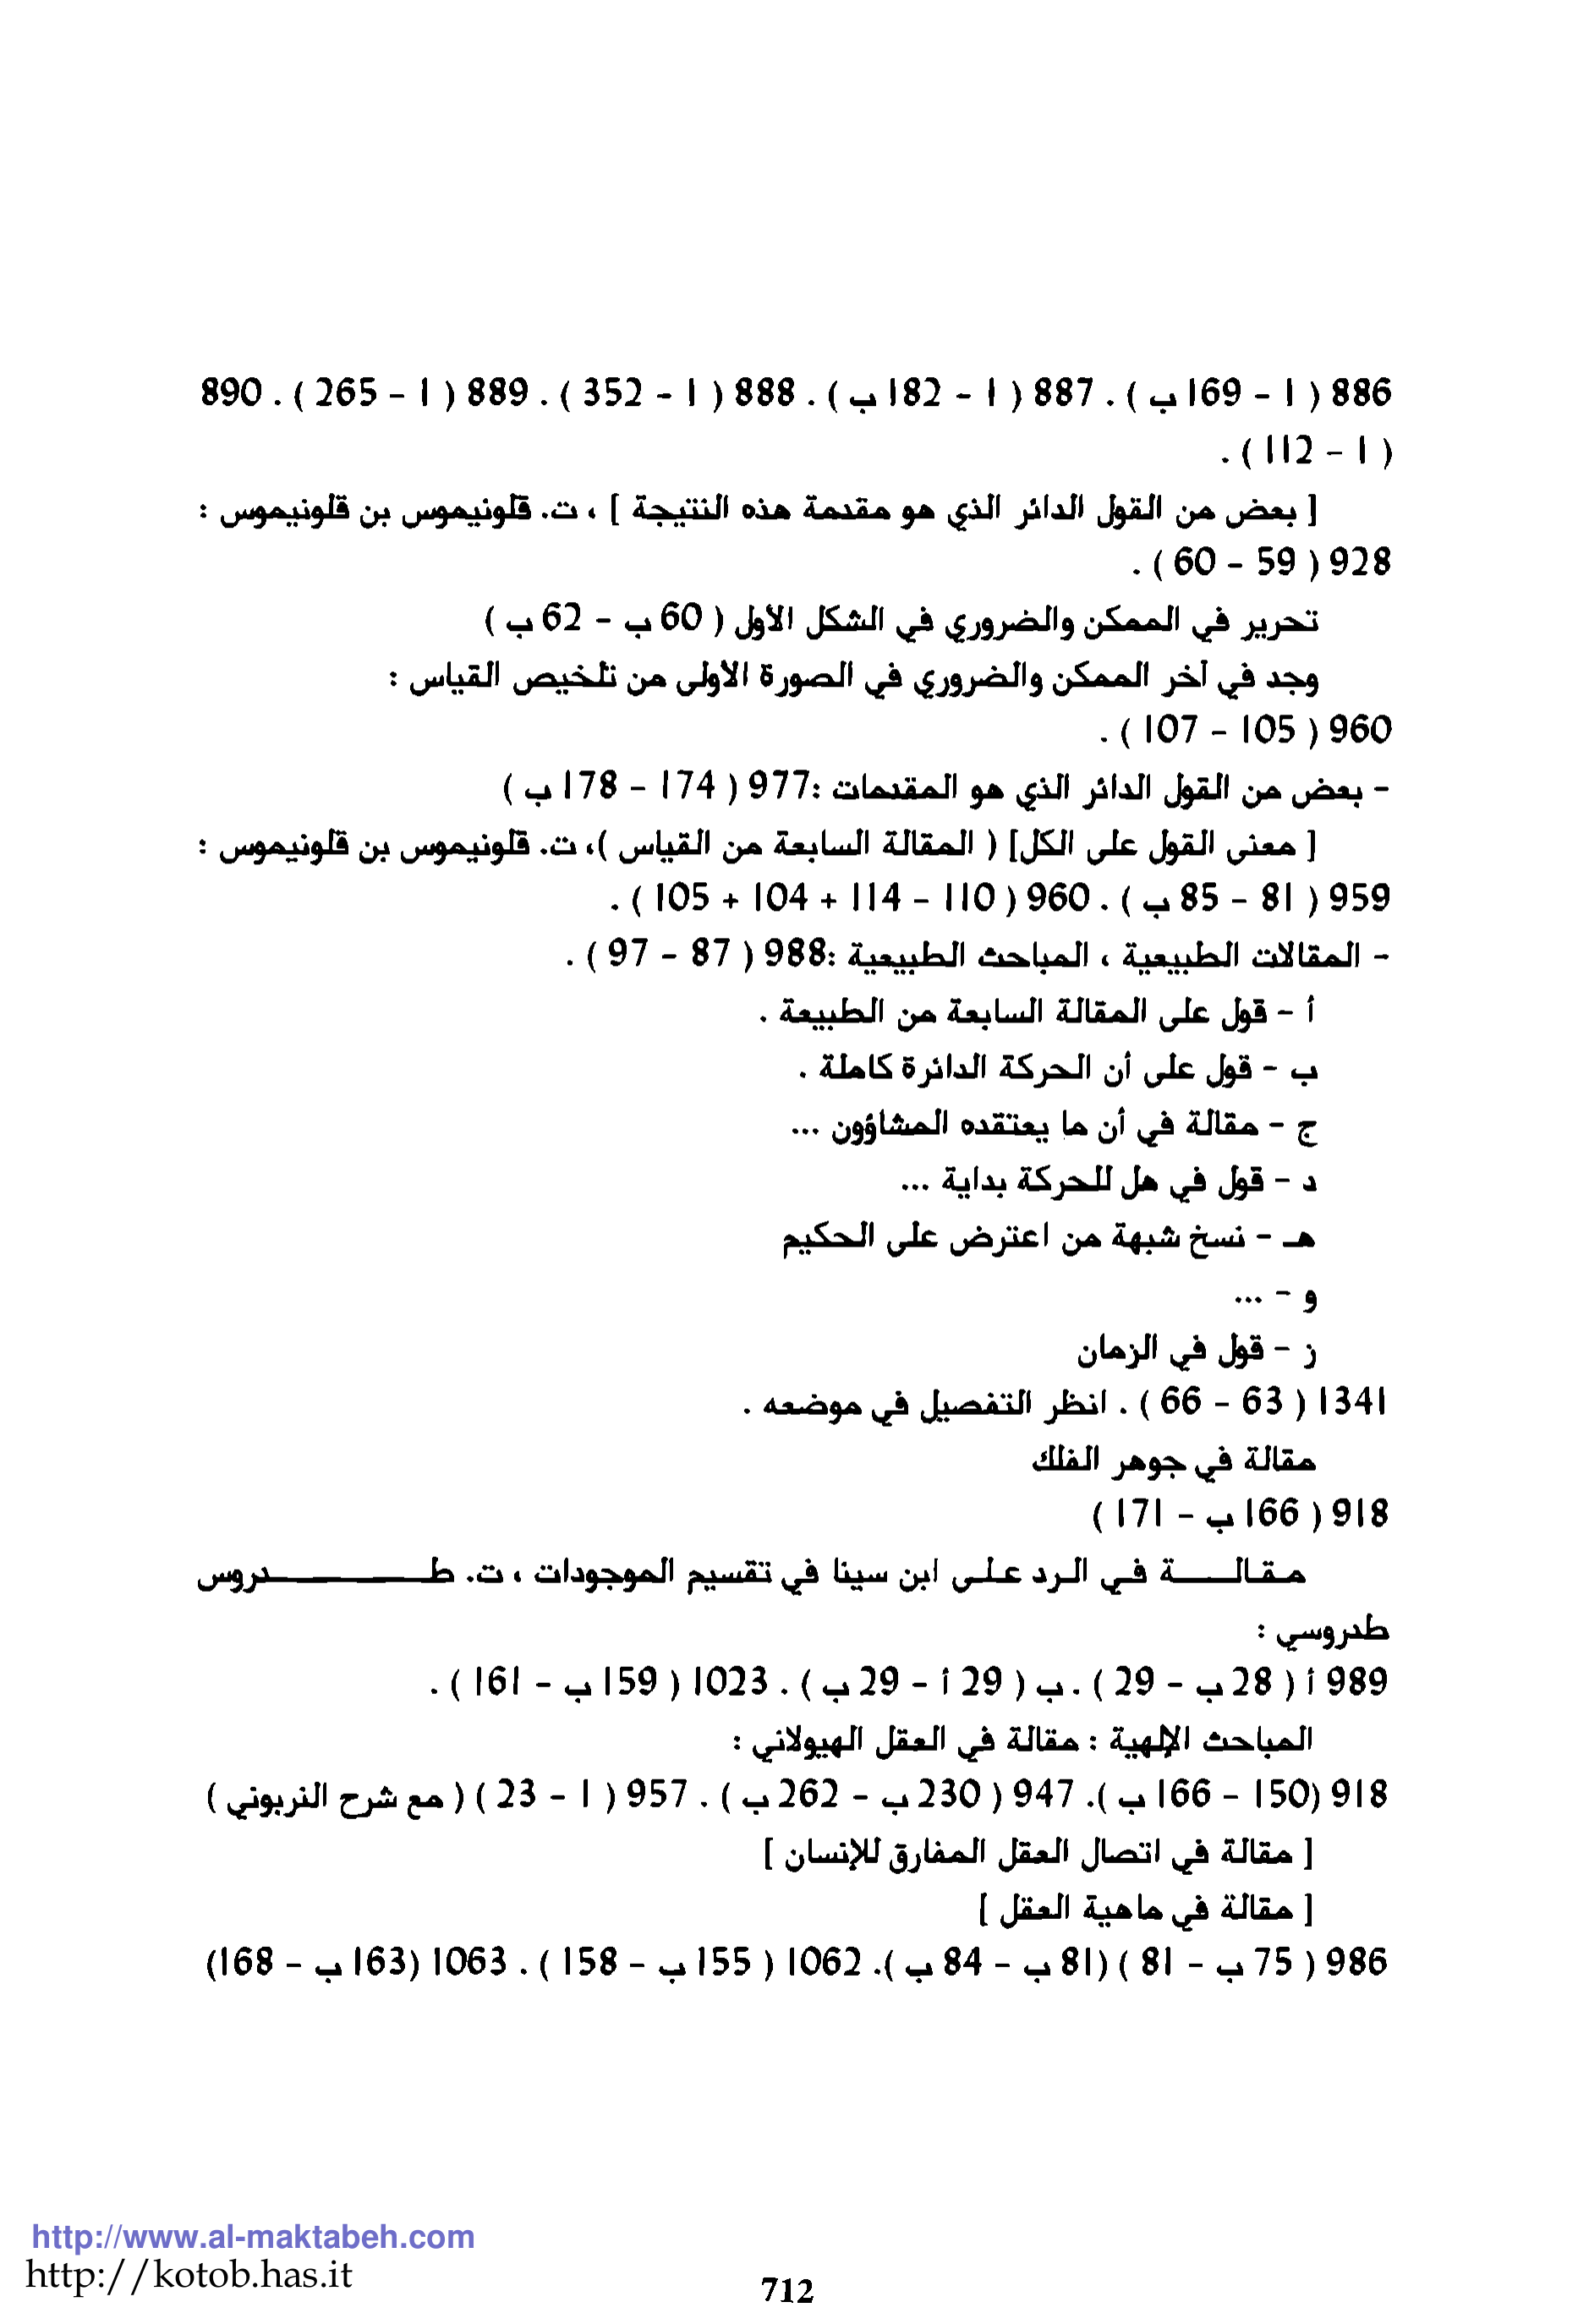 886 ( 1 – 169 ب ) . 887 ( 1 – 182 ب ) . 888 ( 1 – 352 ) . 889 ( 1 – 265 ) . 890
( 1 – 112 ) .
[ بعض من القول الدائر الذي هو مقدمة هذه النتيجة ] ، ت. قلونيموس بن قلونيموس :
928 ( 59 – 60 ) .
تحرير في الممكن والضروري في الشكل الأول ( 60 ب – 62 ب )
وجد في آخر الممكن والضروري في الصورة الأولى من تلخيص القياس :
960 ( 105 – 107 ) .
- بعض من القول الدائر الذي هو المقدمات :977 ( 174 – 178 ب )
[ معنى القول على الكل] ( المقالة السابعة من القياس )، ت. قلونيموس بن قلونيموس :
959 ( 81 – 85 ب ) . 960 ( 110 – 114 + 104 + 105 ) .
- المقالات الطبيعية ، المباحث الطبيعية :988 ( 87 – 97 ) .
أ – قول على المقالة السابعة من الطبيعة .
ب – قول على أن الحركة الدائرة كاملة .
ج – مقالة في أن ما يعتقده المشاؤون ...
د – قول في هل للحركة بداية ...
هـ – نسخ شبهة من اعترض على الحكيم
و – ...
ز – قول في الزمان
1341 ( 63 – 66 ) . انظر التفصيل في موضعه .
مقالة في جوهر الفلك
918 ( 166 ب – 171 )
مقالة في الرد على ابن سينا في تقسيم الموجودات ، ت. طدروس
طدروسي :
989 أ ( 28 ب – 29 ) . ب ( 29 أ – 29 ب ) . 1023 ( 159 ب – 161 ) .
المباحث الإلهية : مقالة في العقل الهيولاني :
918 (150 – 166 ب ). 947 ( 230 ب – 262 ب ) . 957 ( 1 – 23 ) ( مع شرح النربوني )
[ مقالة في اتصال العقل المفارق للإنسان ]
[ مقالة في ماهية العقل ]
986 ( 75 ب – 81 ) (81 ب – 84 ب ). 1062 ( 155 ب – 158 ) . 1063 (163 ب – 168)
http://www.al-maktabeh.com
http://kotob.has.it
712